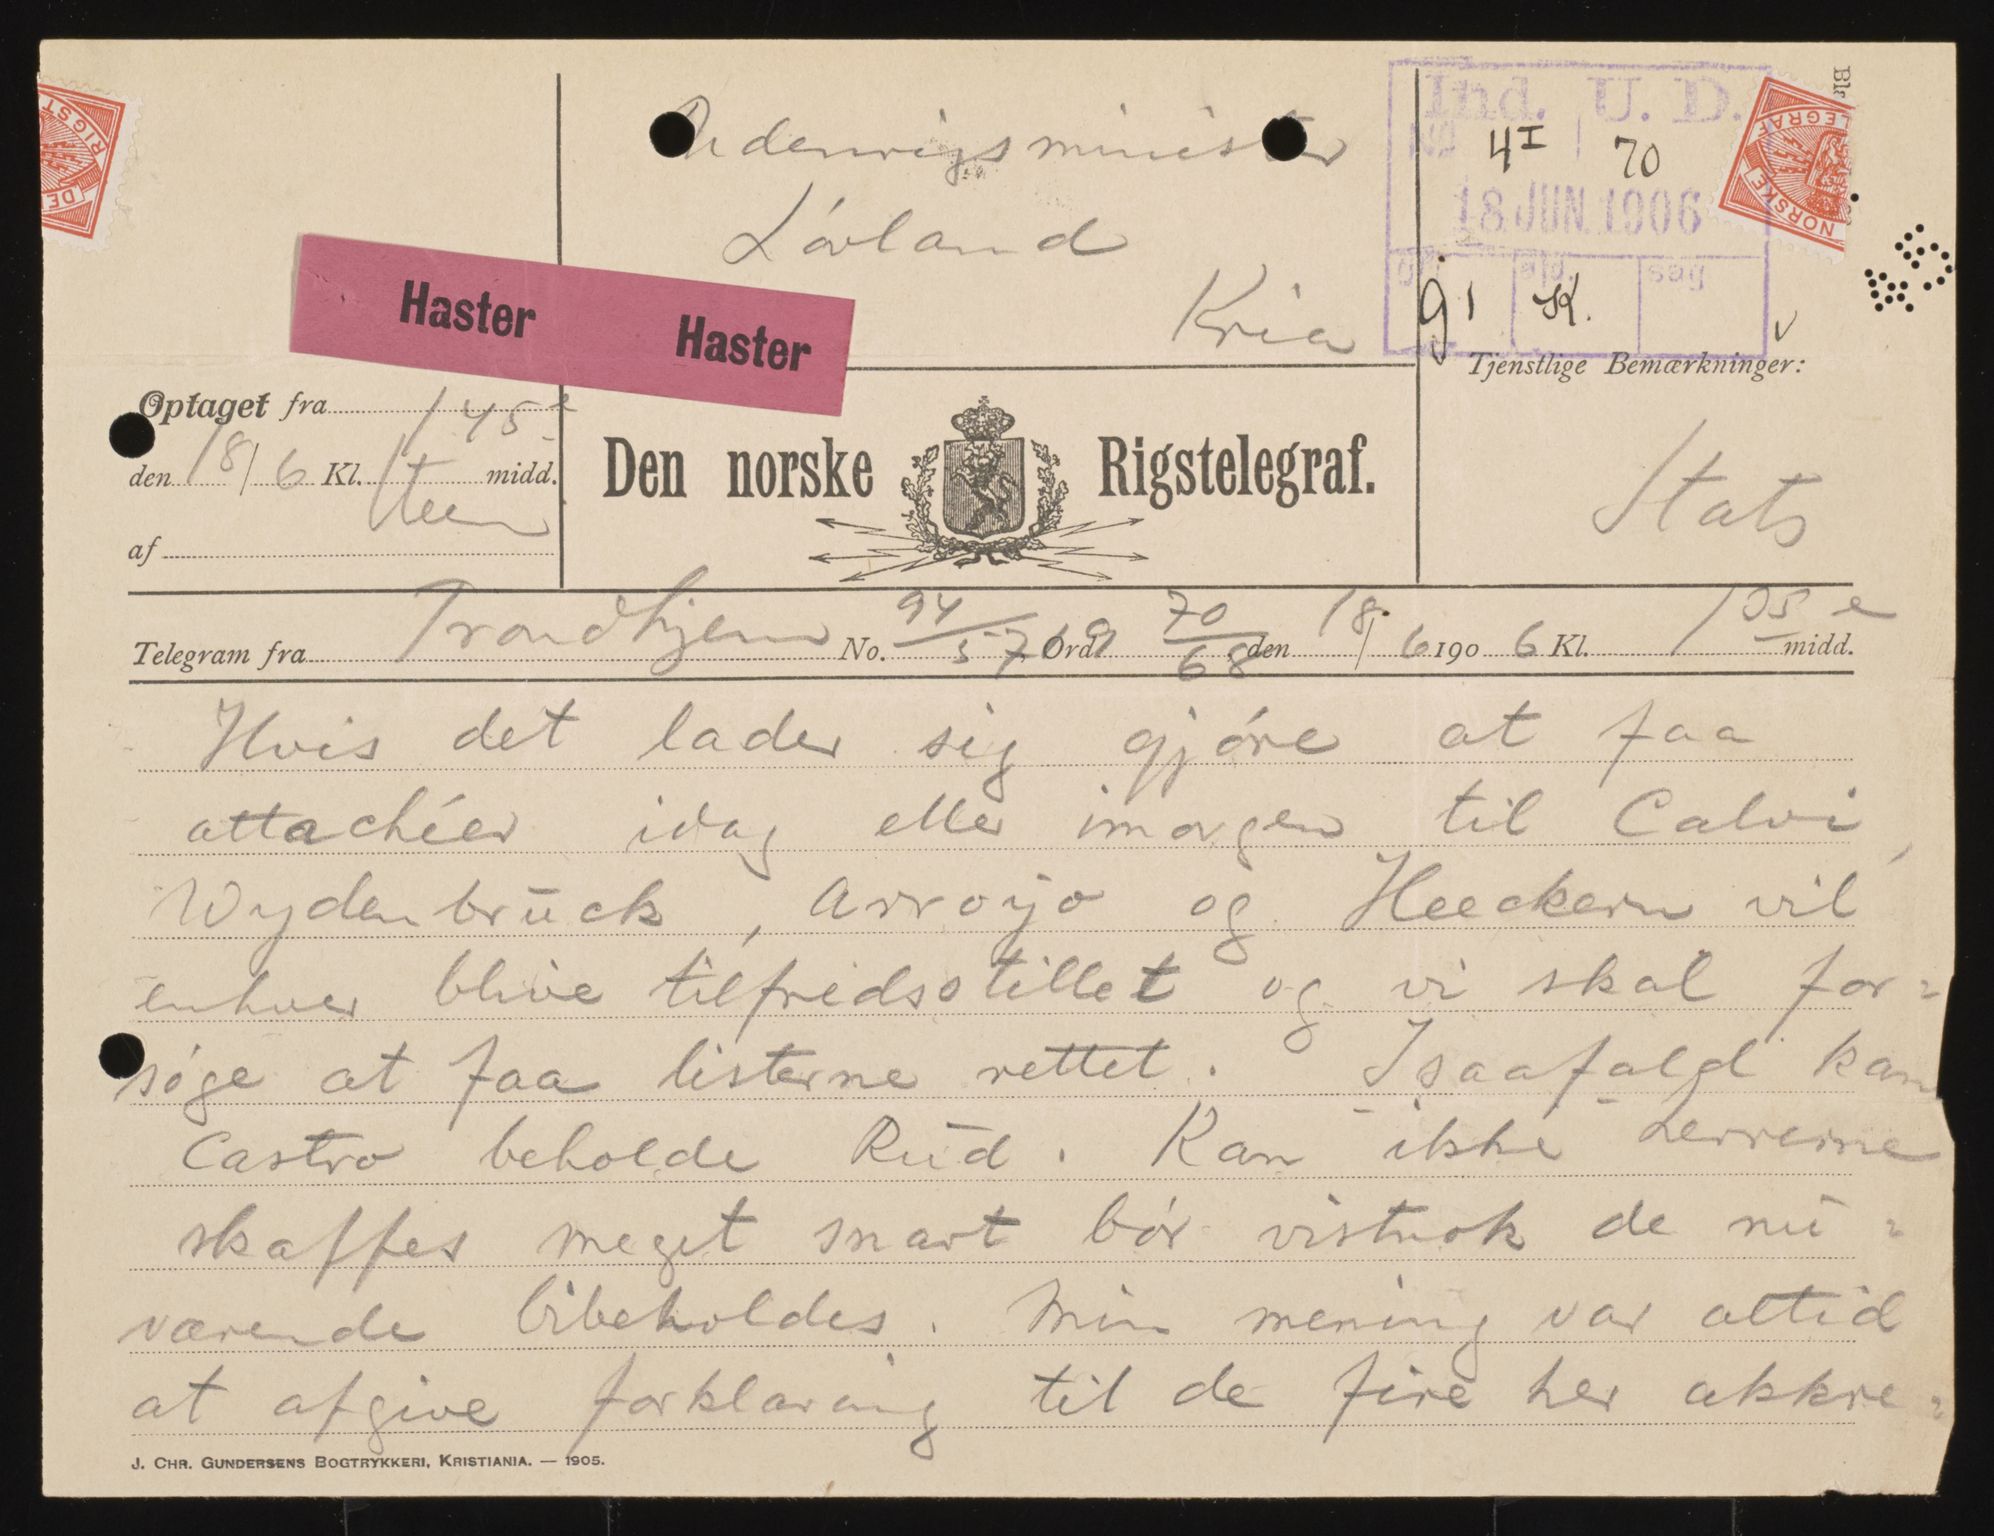 Udenrigsminister
Lövland
Kria
Ind. U. D.
4I 70
18 JUN. 1906
K.
Haster Haster
Tjenstlige Bemærkninger:
Stats
Optaget fra 1 45 e
den 18/6 Kl. midd.
af Steen
Den norske Rigstelegraf.
Telegram fra Trondhjem No. 94/57 Ord 70/68 den 18/6 1906 Kl. 1 05 e midd.
Hvis det lader sig gjóre at faa
attachéer idag eller imorgen til Calvi,
Wydenbrück, Arroyo og Heeckern vil
enhver blive tilfredsstillet og vi skal for=
søge at faa listerne rettet. Isaafald kan
Castro beholde Rūd. Kan ikke herrerne
skaffes meget snart bór vistnok de nū=
værende bibeholdes. Min mening var altid
at afgive forklaring til de fire her akkre=
J. Chr. Gundersens Bogtrykkeri, Kristiania. — 1905.